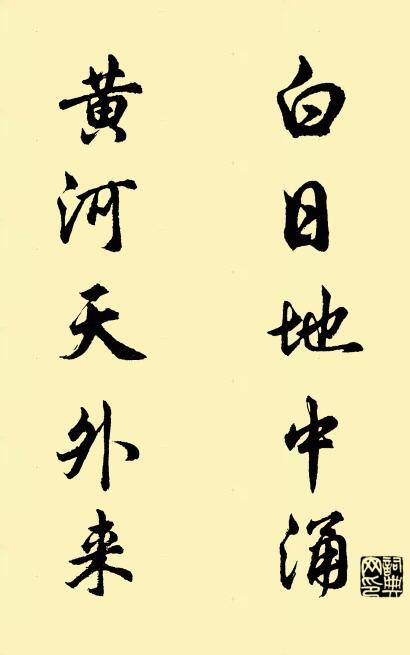 白日地中涌
黄河天外来
詞典網印